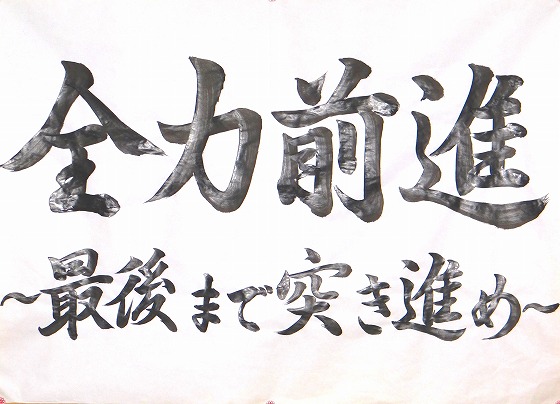 全力前進
~最後まで突き進め~